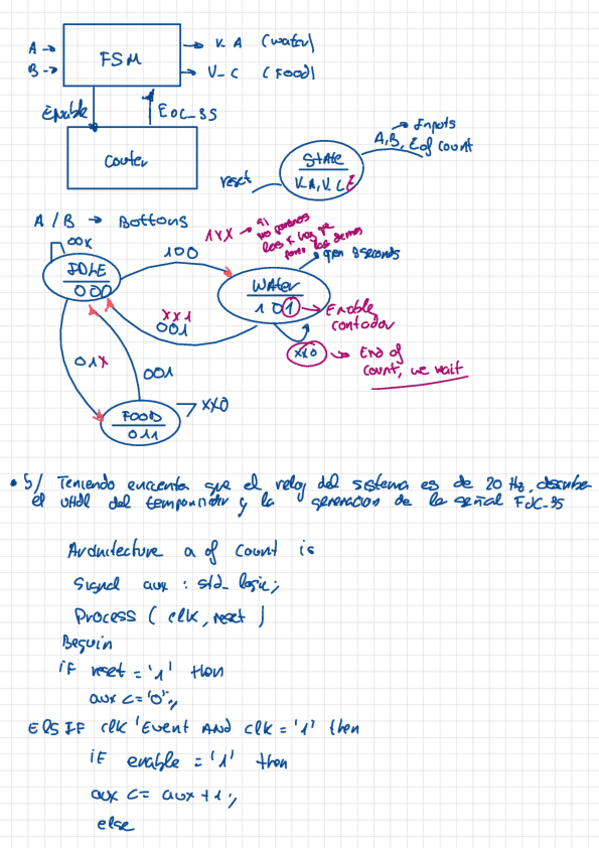 A → FSM → V_A (water)
B → → V_C (Food)
Enable EOC_3S
Couter
→ Inputs
A,B, E of count
STATE
V_A, V_C E
reset
A / B → Bottons
00X
IDLE
000
100
1XX →
→ open 3 seconds
WATER
101 → Enable
contador
XX1
001
XX0 → End of
count, we wait
01X
001
FOOD
011
XX0
• 5/ Teniendo encuenta que el reloj del sistema es de 20 Hz, describe
el VHDL del temporizador y la generacion de la señal EOC_3S
Architecture a of count is
Signal aux : std_logic;
Process ( clk, reset )
Beguin
if reset = '1' then
aux <= '0';
ElSIF clk 'Event AND clk = '1' then
if enable = '1' then
aux <= aux + 1;
else